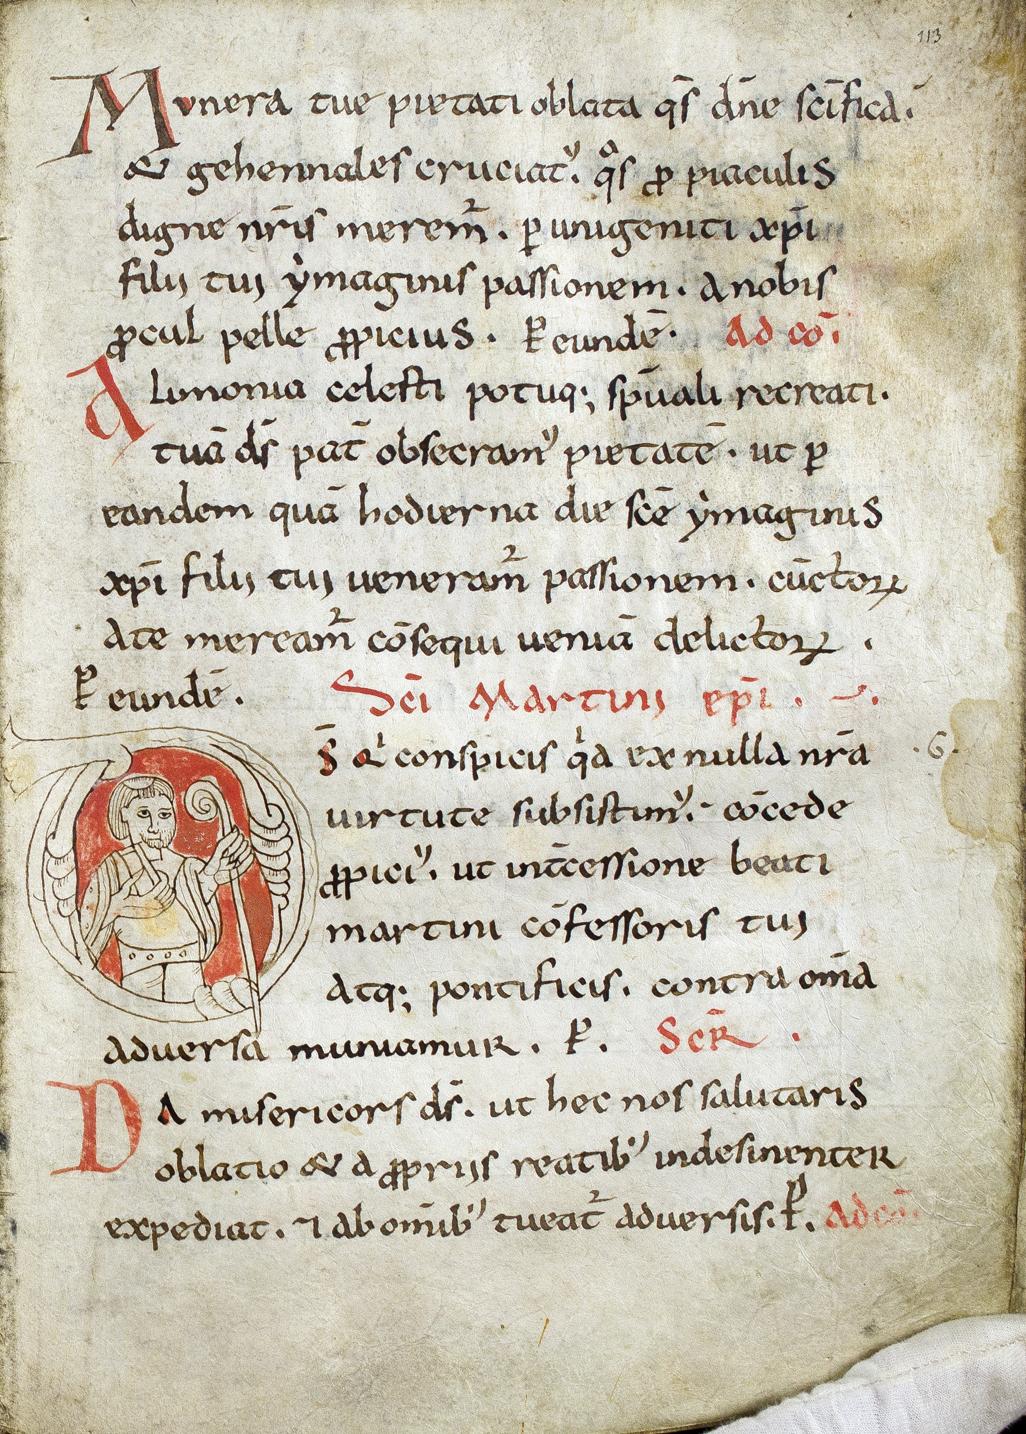 113
Munera tue pietati oblata qs̄ dn̄e scīfica.
& gehennales cruciat᾽. qͦs ꝓ piaculis
digne nr̄is merem̄. ꝑ unigeniti xp̄i
filij tuj ẏmaginis passionem. a nobis
ꝓcul pelle ꝓpicius. P̲ eundē. Ad cōī
Alimonia celesti potuq; spūali recreati.
tuā ds̄ pat̄ obsecram᾽ pietatē. ut ꝑ
eandem quā hodierna die scē ẏmaginis
xp̄i filij tuj ueneram̄ passionem. cūctoꝝ
a te meream̄ cōsequi ueniā delictoꝝ.
P̲ eundē. Scī Martinj ep̄i.
D̄s qͥ conspicis qͥa ex nulla nrā
.6.
uirtute subsistim᾽. cōcede
ꝓpici᾽. ut int̄cessione beati
martini cōfessoris tuj
atq; pontificis. contra om̄ia
aduersa muniamur. P̲. Scr̄.
Da misericors ds̄. ut hec nos salutaris
oblatio & a ꝓprijs reatib᾽ indesinenter
expediat. ⁊ ab om̄ib᾽ tueat̄ aduersis. P̲. Ad cō